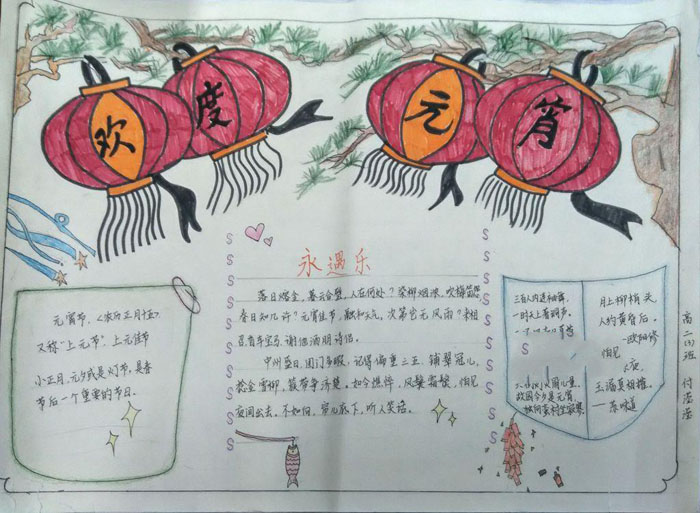 欢度元宵
永遇乐
元宵节,《农历正月十五》
又称"上元节",上元佳节
小正月、元夕或是灯节,是春
节后一个重要的节日。
落日熔金,暮云合璧,人在何处?染柳烟浓,吹梅笛怨,
春日知几许?元宵佳节,融和天气,次第岂无风雨?来相
召香车宝马,谢他酒朋诗侣。
中州盛日,闺门多暇,记得偏重三五,铺翠冠儿,
捻金雪柳,簇带争济楚,如今憔悴,风鬟霜鬓,怕见
夜间出去,不如向,帘儿底下,听人笑语。
一时
故园今夕是元宵
月上柳梢头
人约黄昏后。
—欧阳修
玉漏莫相催
—苏味道
高二班